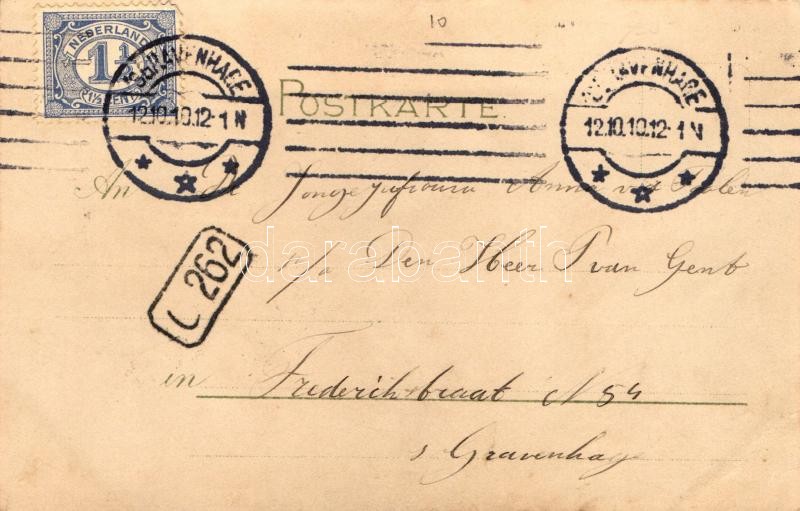 10
NEDERLAND
1½
1½ CENT
'S GRAVENHAGE
12.10.10.12-1 N
POSTKARTE
'S GRAVENHAGE
12.10.10.12-1 N
An Jongejufvrouw Anna
p/a Den Heer P van Gent
L 262
darabanth
in Frederikstraat N 54
s Gravenhage